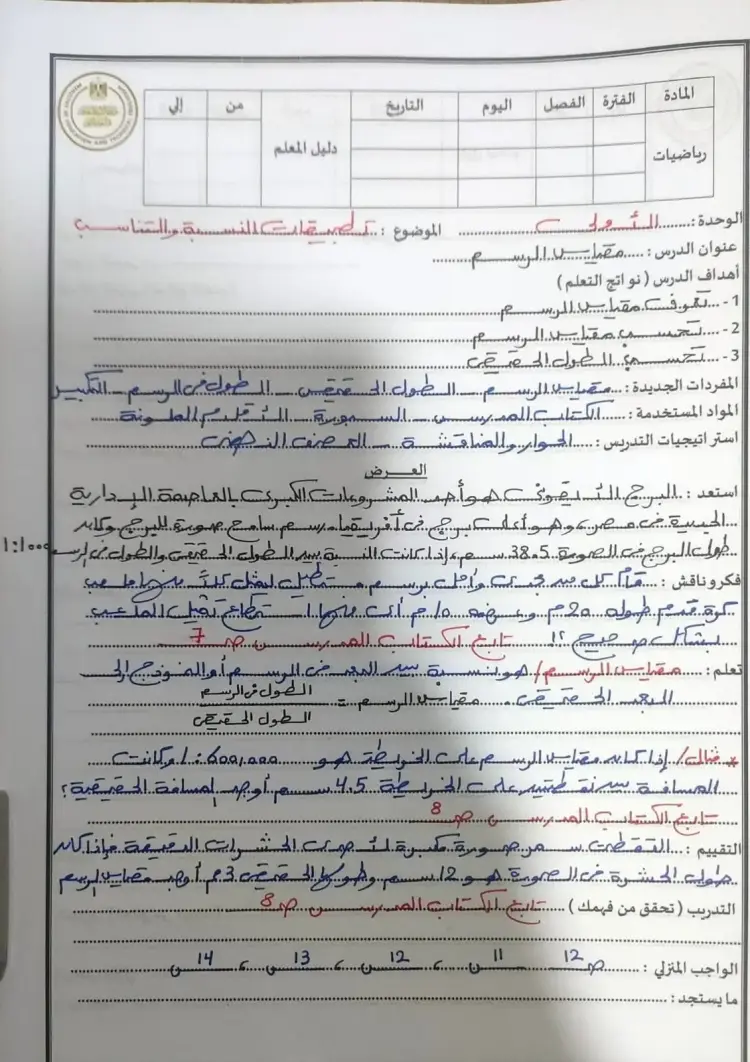 المادة الفترة الفصل اليوم التاريخ دليل المعلم من إلي
رياضيات
الوحدة : الأولى الموضوع : تطبيقات النسبة والتناسب
عنوان الدرس : مقياس الرسم
أهداف الدرس ( نواتج التعلم )
1- تعرف مقياس الرسم
2- تحسب مقياس الرسم
3- تحسب الطول الحقيقى
المفردات الجديدة : مقياس الرسم - الطول الحقيقى - الطول فى الرسم - التكبير
المواد المستخدمة : الكتاب المدرسى - السبورة - الأقلام الملونة
استراتيجيات التدريس : الحوار والمناقشة - العصف الذهنى
العرض
استعد : البرج الأيقونى هو أحد المشروعات الكبرى بالعاصمة الإدارية
الجديدة فى مصر وهو أعلى برج فى أفريقيا، رسم سامح صورة للبرج وكان
طول البرج فى الصورة 38.5 سم، إذا كانت النسبة بين الطول الحقيقى والطول فى الرسم 1:1000
فكر وناقش : قام كل من مجدى وأمل برسم مستطيل ليمثل كلاً منهما ملعب
كرة قدم طوله 20م وعرضه 10م أى منهما استطاع تمثيل الملعب
بشكل صحيح ؟! تابع الكتاب المدرسى صـ 7
تعلم : مقياس الرسم / هو نسبة بين البعد فى الرسم أو النموذج إلى
البعد الحقيقى . مقياس الرسم = الطول فى الرسم
الطول الحقيقى
* مثال / إذا كان مقياس الرسم على الخريطة هو 1:600,000 وكانت
المسافة بين نقطتين على الخريطة 4.5 سم أوجد المسافة الحقيقية ؟
تابع الكتاب المدرسى صـ 8
التقييم : التقطت سمر صورة مكبرة لأحدى الحشرات الدقيقة فإذا كان
طول الحشرة فى الصورة هو 12 سم وطولها الحقيقى 3م أوجد مقياس الرسم
التدريب ( تحقق من فهمك ) تابع الكتاب المدرسى صـ 8
الواجب المنزلي : صـ 12 س 11 ، س 12 ، س 13 ، س 14
ما يستجد :